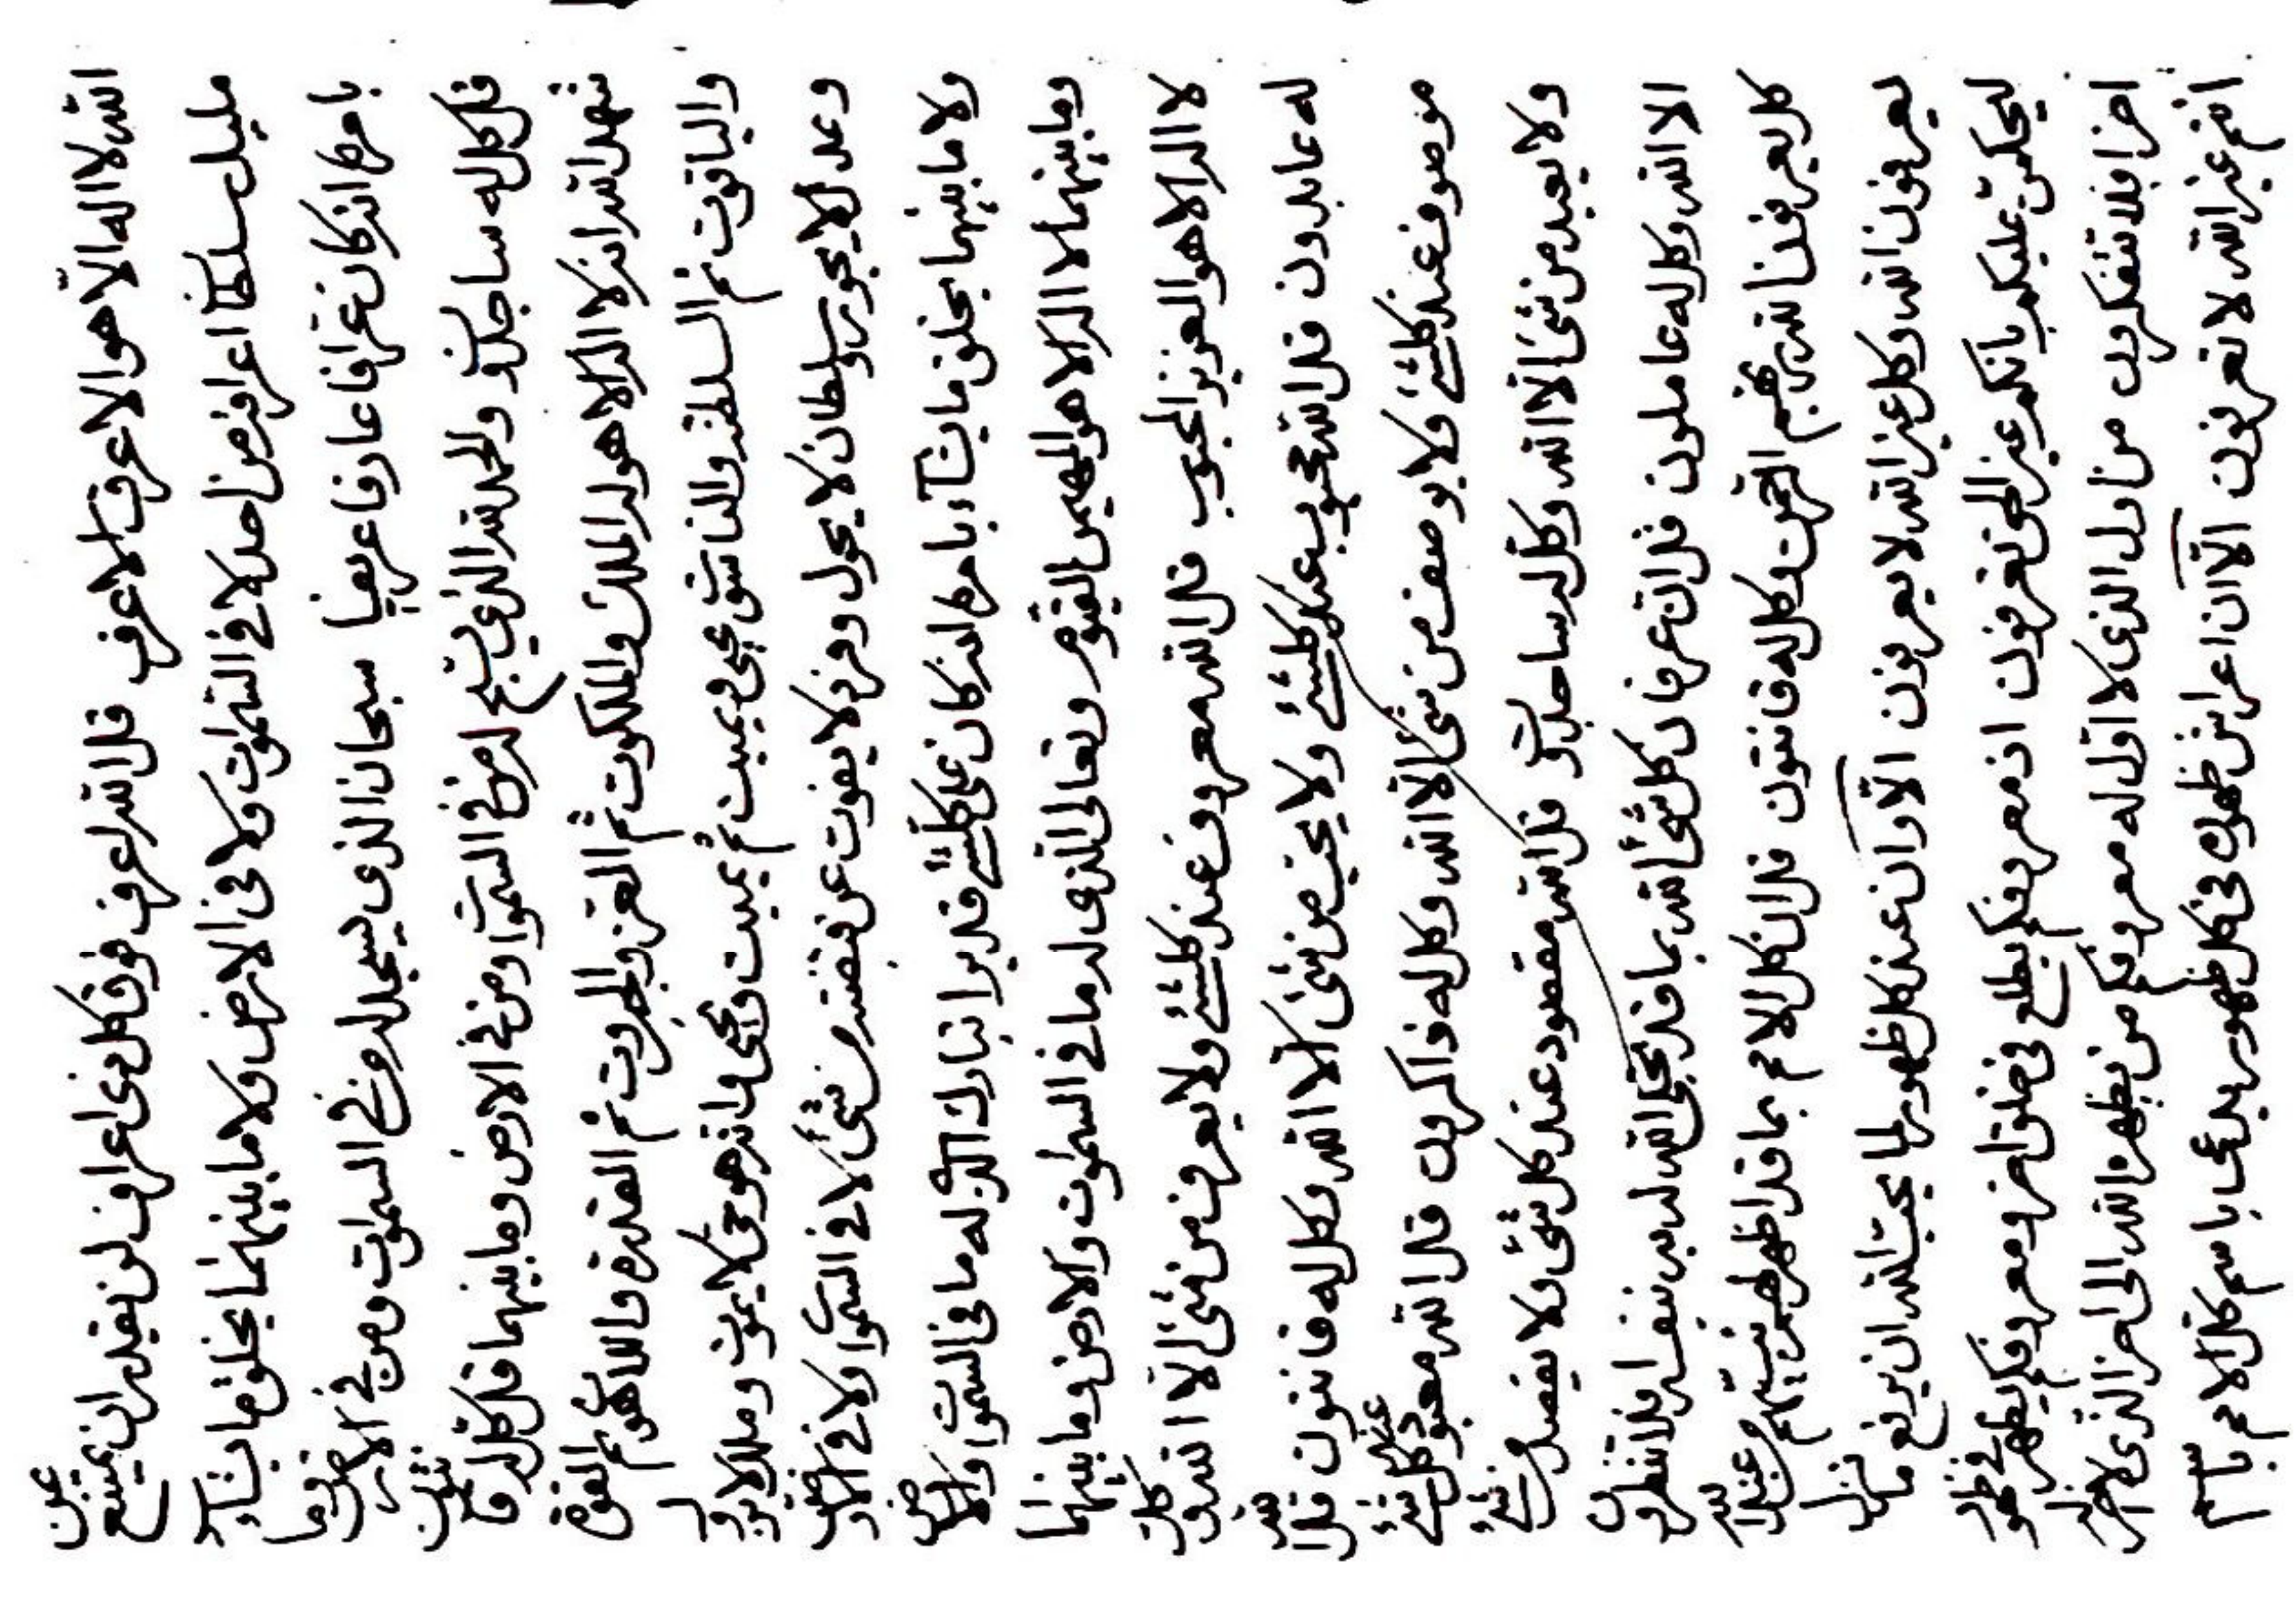 الله لا اله الا هو الاعرف الاعرف قل الله اعرف فوق كل ذى اعراف لن يقدر ان يمتنع عن
مليك سلطان اعرافه من احد لا فى السموات ولا فى الارض ولا ما بينهما يخلق ما يشآء
بامره انه كان عرافا عارفا عريفا سبحان الذى يسجد له من فى السموات ومن فى الارض وما بينهما
قل كل له ساجدون والحمد لله الذى يسبح له من فى السموات ومن فى الارض وما بينهما قل كل له قانتون
شهد الله انه لا اله الا هو له الملك والملكوت ثم العز والجبروت ثم القدرة واللاهوت ثم القوة
والياقوت ثم السلطنة والناسوت يحيى ويميت ثم يميت ويحيى وانه هو حى لا يموت وملك لا يزول
وعدل لا يجور وسلطان لا يحول وفرد لا يفوت عن قبضته من شئ لا فى السموات ولا فى الارض
ولا ما بينهما يخلق ما يشآء بامره انه كان على كلشئ قديرا تبارك الذى له ما فى السموات والارض
وما بينهما لا اله الا هو المهيمن القيوم وتعالى الذى له ما فى السموات والارض وما بينهما
لا اله الا هو العزيز المحبوب قل الله معروف عند كلشئ ولا يعرف من شئ الا الله وكل
له عابدون قل الله محبوب عند كلشئ ولا يحب من شئ الا الله وكل له قانتون قل الله
موصوف عند كلشئ ولا يوصف من شئ الا الله وكل له ذاكرون قل الله معبود عند كل شئ
ولا يعبد من شئ الا الله وكل له ساجدون قل الله مقصود عند كل شئ ولا يقصد من شئ
الا الله وكل له عاملون قل ان عرفان كل شئ الله بما قد تجلى الله له به بنفسه افلا تنظرون
كل يعرفون الله ربهم الرحمن وكل له قانتون قل ان كل الامم بما قد اظهر لهم نبيهم من عند الله
يعرفون الله وكل عند الله لا يعرفون الا وان عند كل ظهور لما يحب الله ان يرفع ما نزل
ليحكمن عليكم بانكم غير الحق تعرفون اذ معروفكم يطلع فى خلق اخر ومعروفكم يظهر فى ظهور
اخر افلا تتفكرون من اول الذى لا اول له معروفكم من يظهره الله الى اخر الذى لا اخر له
انتم غير الله لا تعرفون الا ان اعراش ظهوره فى كل ظهور يدعى باسم كل الامم باسم